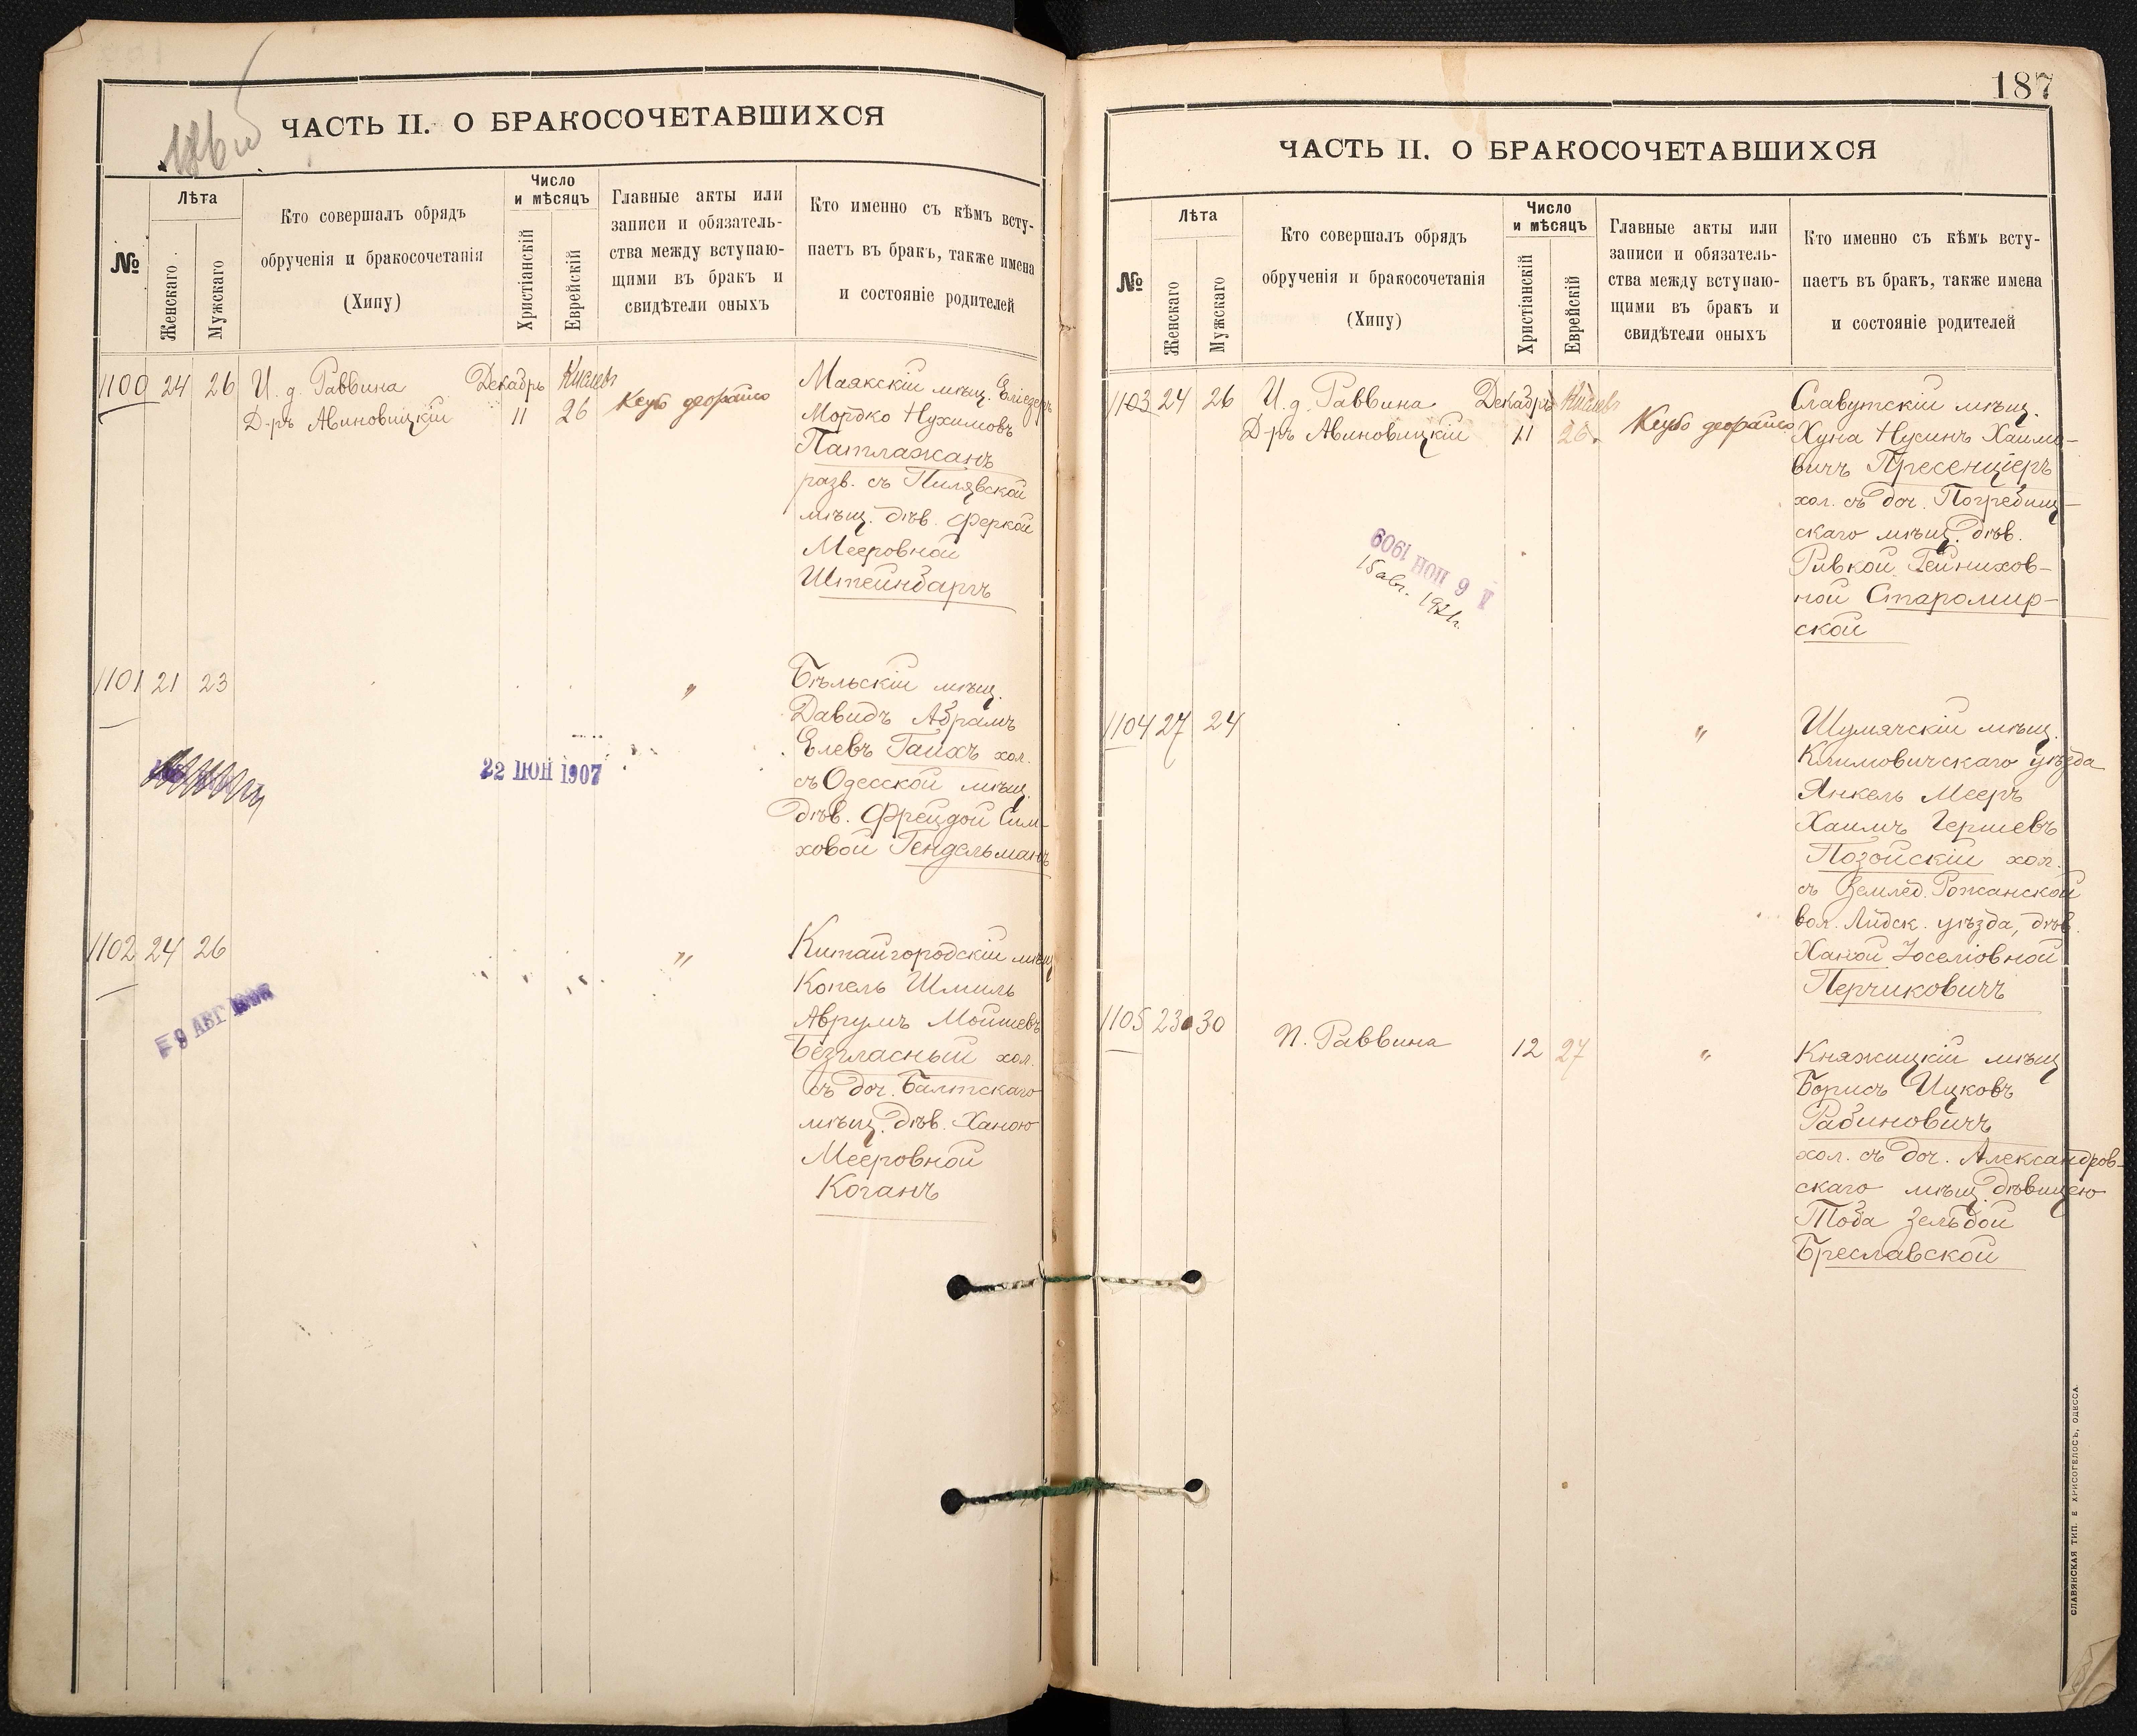 ЧАСТЬ II. О БРАКОСОЧЕТАВШИХСЯ
№
Лѣта
Женскаго
Мужскаго
Кто совершалъ обрядъ
обрученія и бракосочетанія
(Хипу)
Число
и мѣсяцъ
Христіанскій
Еврейскій
Главные акты или
записи и обязатель-
ства между вступаю-
щими въ бракъ и
свидѣтели оныхъ
Кто именно съ кѣмъ всту-
паетъ въ бракъ, также имена
и состояніе родителей
1100 24 26 И. д. Раввина Декабрь Кислевъ
Д-ръ Авиновицкій 11 26
Маякскій мѣщ. Еліезеръ
Мордко Нухимовъ
Патлажанъ
разв. съ Пилявской
мѣщ. дѣв. Феркой
Мееровной
Штейнбаргъ
1101 21 23 "
Бѣльскій мѣщ.
Давидъ Абрамъ
Елевъ Гаихъ хол.
съ Одесской мѣщ.
дѣв. Фрейдой Сим-
ховой Гендельманъ
22 ІЮН 1907
1102 24 26 "
Китайгородскій мѣщ
Копель Шмиль
Аврумъ Мойшевъ
Безгласный хол.
съ доч. Балтскаго
мѣщ. дѣв. Ханою
Мееровной
Коганъ
9 АВГ
187
ЧАСТЬ II. О БРАКОСОЧЕТАВШИХСЯ
№
Лѣта
Женскаго
Мужскаго
Кто совершалъ обрядъ
обрученія и бракосочетанія
(Хипу)
Число
и мѣсяцъ
Христіанскій
Еврейскій
Главные акты или
записи и обязатель-
ства между вступаю-
щими въ бракъ и
свидѣтели оныхъ
Кто именно съ кѣмъ всту-
паетъ въ бракъ, также имена
и состояніе родителей
1103 24 26 И. д. Раввина Декабрь Кислевъ
Д-ръ Авиновицкій 11 26
Славутскій мѣщ.
Хуна Нусинъ Хаимо-
вичъ Пресенціеръ
хол. съ доч. Погребищ-
скаго мѣщ. дѣв.
Ривкой Гейнихов-
ной Старомир-
ской
6 ІЮН 1909
15 авг. 1921г.
1104 27 24 "
Шумячскій мѣщ.
Климовичскаго уѣзда
Янкель Мееръ
Хаимъ Гершевъ
Позойскій хол.
съ Землед. Рожанской
вол. Лидск. уѣзда, дѣв.
Ханой Іоселіовной
Перчиковичъ
1105 23 30 П. Раввина 12 27 "
Княжицкій мѣщ
Борисъ Ицковъ
Рабиновичъ
хол. съ доч. Александров-
скаго мѣщ. дѣвицею
Тоба Зельдой
Бреславской
СЛАВЯНСКАЯ ТИП. Е ХРИСОГЕЛОСЪ, ОДЕССА.